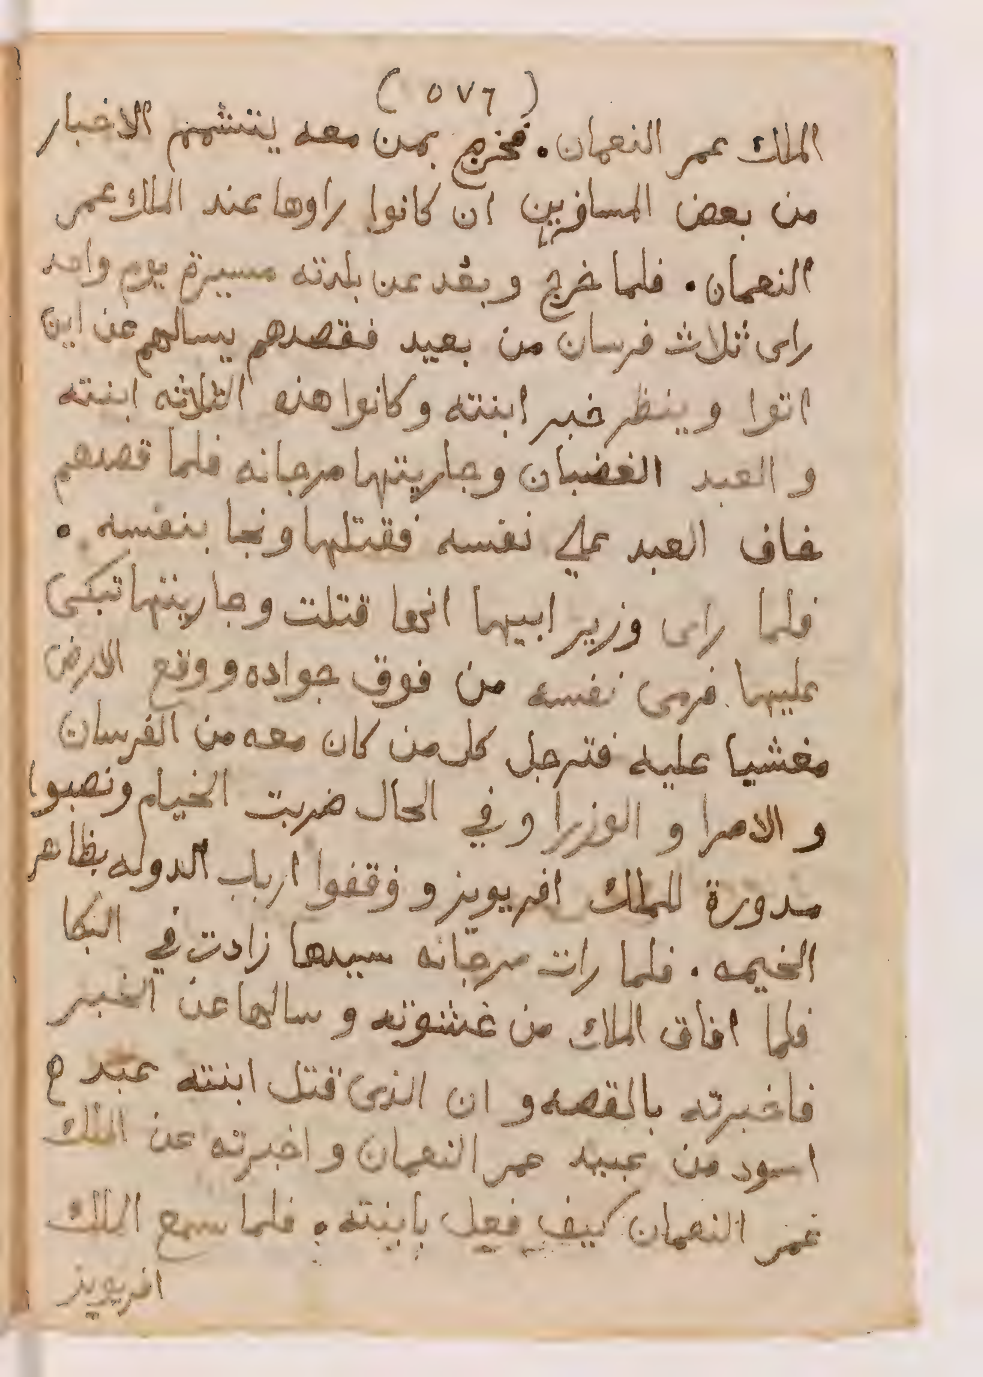 ( ٥٧٦ )
الملك عمر النعمان . فخرج بمن معه يتنشمم الاخبار
من بعض المسافرين ان كانوا راوها عند الملك عمر
النعمان . فلما خرج وبعد عن بلدته مسيرة يوم واحد
راى ثلاث فرسان من بعيد فقصدهم يسالهم عن اين
اتوا وينظر خبر ابنته وكانوا هذه الثلاثه ابنته
والعبد الغضبان وجاريتها مرجانه فلما قصدهم
خاف العبد على نفسه فقتلها ونجا بنفسه .
فلما راى وزير ابيها انها قتلت وجاريتها تبكى
عليها فرمى نفسه من فوق جواده ووقع الارض
مغشيا عليه فترجل كل من كان معه من الفرسان
والامرا والوزرا وفي الحال ضربت الخيام ونصبوا
مدورة للملك افريويز ووقفوا ارباب الدوله بظاهر
الخيمه . فلما رات مرجانه سيدها زادت في البكا
فلما افاق الملك من غشوته وسالها عن الخبر
فاخبرته بالقصه وان الذى قتل ابنته عبد
اسود من عبيد عمر النعمان واخبرته عن الملك
عمر النعمان كيف فعل بابنته . فلما سمع الملك
افريويز